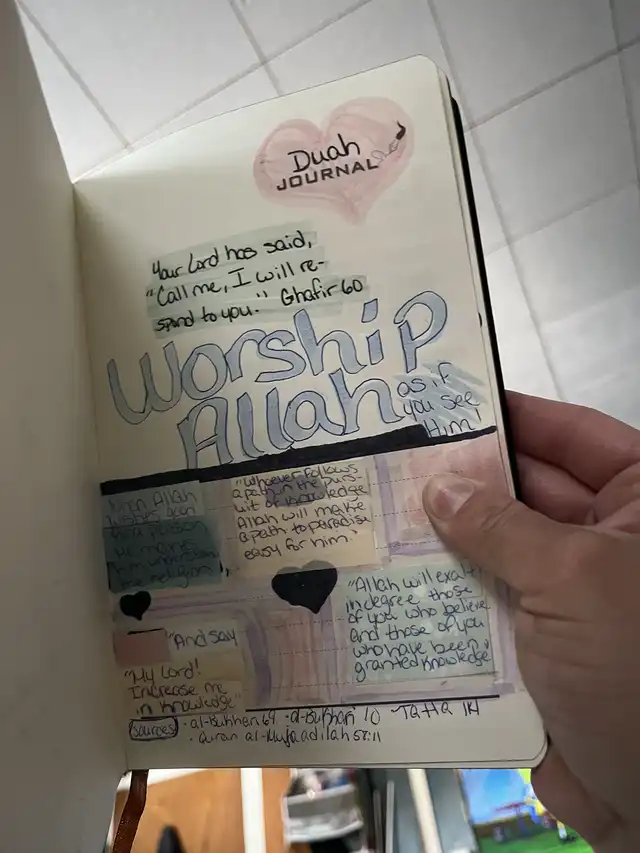 Duah
JOURNAL
Your Lord has said,
"Call me, I will re-
spond to you." Ghafir 60
Worship
Allah
as if
you see
Him!
When Allah
wishes good
for a person
He makes
him understand
the religion,
"Whoever follows
a path in the purs-
uit of knowledge
Allah will make
a path to paradise
easy for him.
"Allah will exalt
in degree those
of you who believe
and those of you
who have been
granted knowledge
"And say
"My Lord!
Increase me
in knowledge"
Sources
· al-Bukhari 69 · al-Bukhari 10 TaHa 114
· Quran al-Mujaadilah 58:11